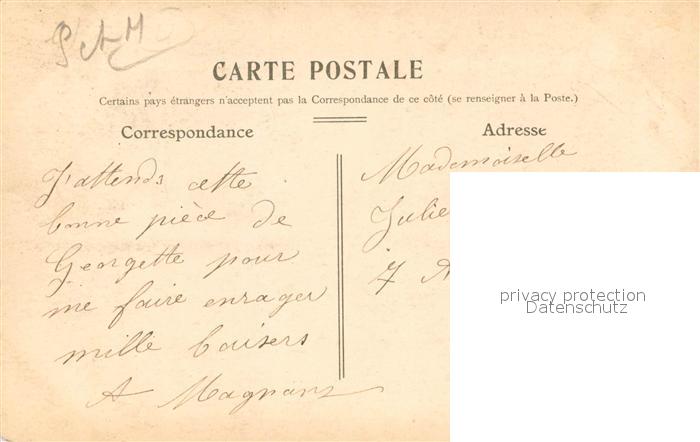 CARTE POSTALE
Certains pays étrangers n'acceptent pas la Correspondance de ce côté (se renseigner à la Poste.)
Correspondance
Adresse
J'attends cette
bonne pièce de
Georgette pour
me faire enrager
mille baisers
A Magnans
Mademoiselle
Julie
7
privacy protection
Datenschutz